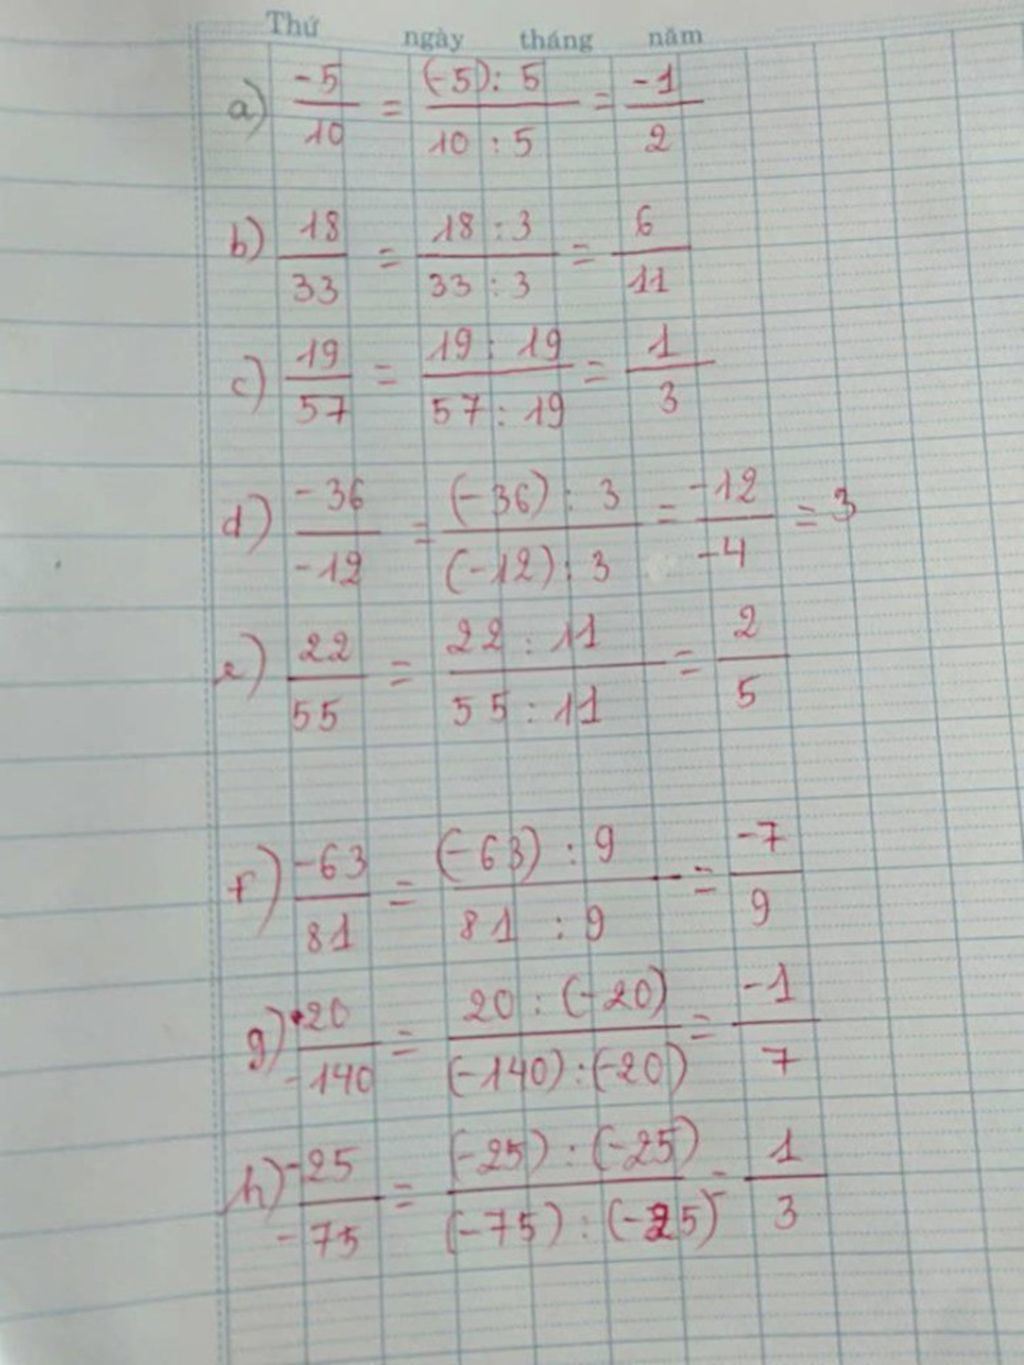 Thứ ngày tháng năm
a) -5/10 = (-5) : 5 / 10 : 5 = -1/2
b) 18/33 = 18 : 3 / 33 : 3 = 6/11
c) 19/57 = 19 : 19 / 57 : 19 = 1/3
d) -36/-12 = (-36) : 3 / (-12) : 3 = -12/-4 = 3
e) 22/55 = 22 : 11 / 55 : 11 = 2/5
f) -63/81 = (-63) : 9 / 81 : 9 = -7/9
g) 20/-140 = 20 : (-20) / (-140) : (-20) = -1/7
h) -25/-75 = (-25) : (-25) / (-75) : (-25) = 1/3